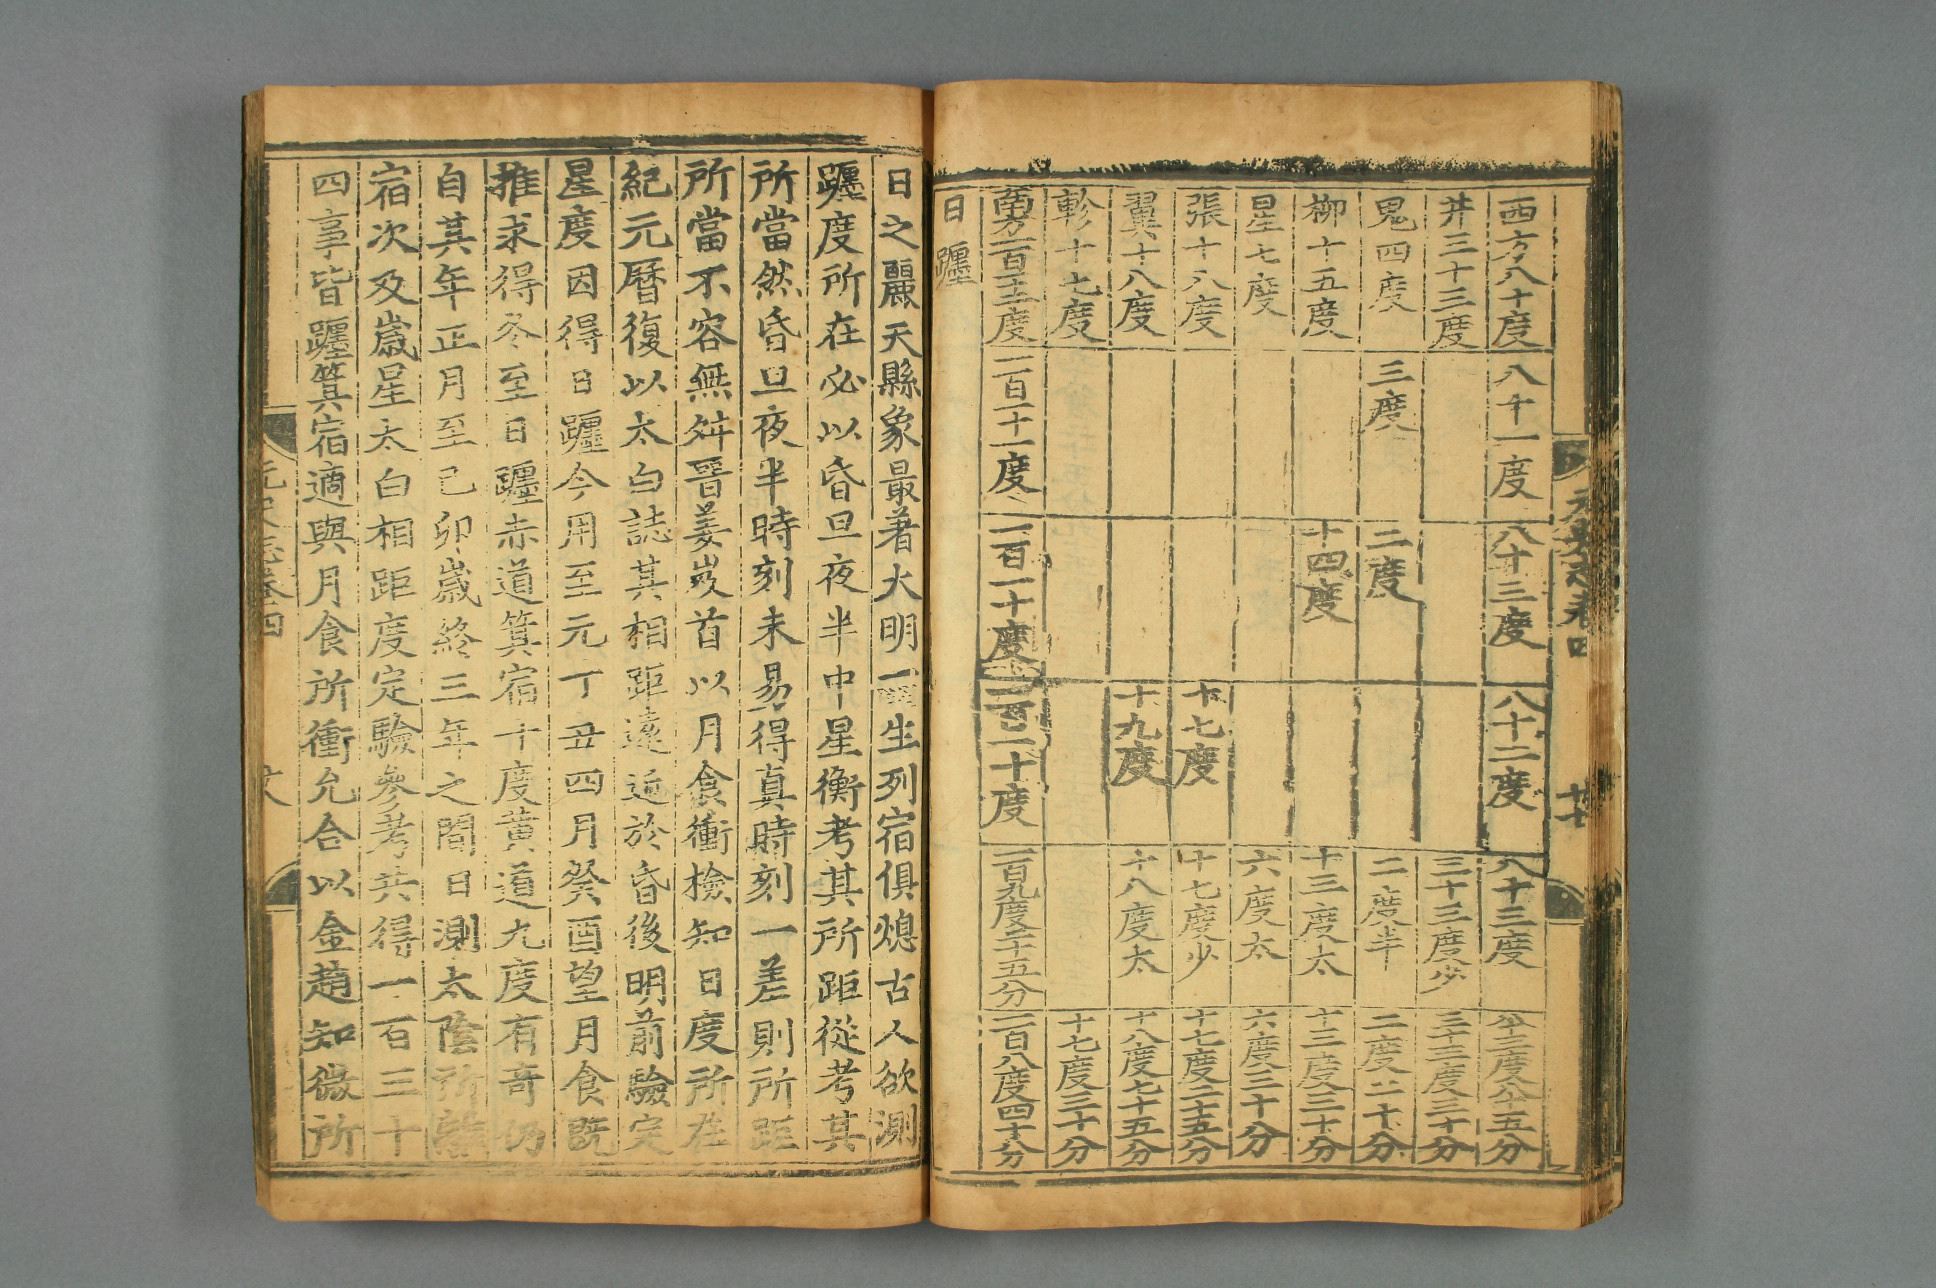 元史志卷四
西方八十度 八十一度 八十三度 八十二度 八十三度 八十三度八十五分
井三十三度 三十三度少 三十三度三十分
鬼四度 三度 二度 二度半 二度二十分
柳十五度 十四度 十三度太 十三度三十分
星七度 六度太 六度三十分
張十八度 十七度 十七度少 十七度二十五分
翼十八度 十九度 十八度太 十八度七十五分
軫十七度 十七度三十分
南方一百十二度 一百一十一度 一百一十度 一百一十度 一百九度二十五分 一百八度四十分
日躔
日之麗天縣象最著大明一生列宿俱熄古人欲測
躔度所在必以昏旦夜半中星衡考其所距從考其
所當然昏旦夜半時刻未易得真時刻一差則所距
所當不容無舛晉姜岌首以月食衝檢知日度所在
紀元曆復以太白誌其相距遠近於昏後明前驗定
星度因得日躔今用至元丁丑四月癸酉望月食既
推求得冬至日躔赤道箕宿十度黄道九度有奇仍
自其年正月至己卯歲終三年之間日測太陰所離
宿次及歲星太白相距度定驗參考共得一百三十
四事皆躔箕宿適與月食所衝允合以金趙知微所
元史志卷四